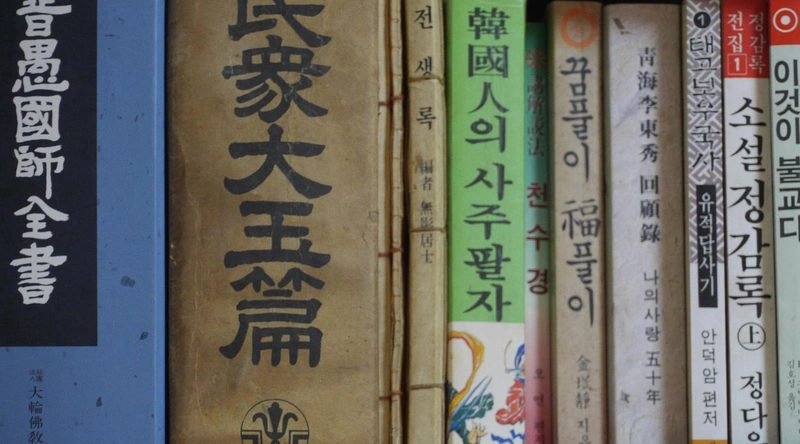 普愚國師全書
大輪佛教
民衆大玉篇
전생록
編者 無影居士
韓國人의 사주팔자
천수경
꿈풀이 福풀이
靑海李東秀 回顧錄
나의사랑 五十年
1
태고보우국사
유적답사기
안덕암 편저
정감록
전집 1
소설 정감록 上
정다운
이것이 불교다